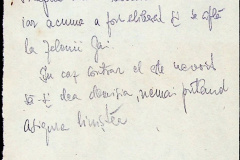 iar acuma a fost eliberat și se află
la Jelonii Jai.
În caz contrar el este nevoit
să-și dea demisia, nemai putând
asigura liniștea